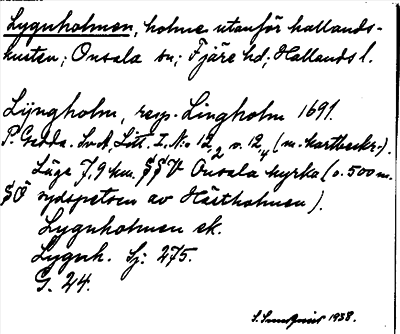 Lygnholmen, holme utanför hallands-
kusten; Onsala sn; Fjäre hd; Hallands l.
Lÿngholm, resp. Lingholm 1691.
P. Gedda. Svst. Litt. I. No 12 2 o. 12 4 (m. kartbeskr.).
Läge 7,9 km. SSV Onsala kyrka (o. 500 m.
SÖ sydspetsen av Hästholmen).
Lygnholmen ek.
Lygnh. Sj: 275.
G. 24.
S. Sundqvist 1938.